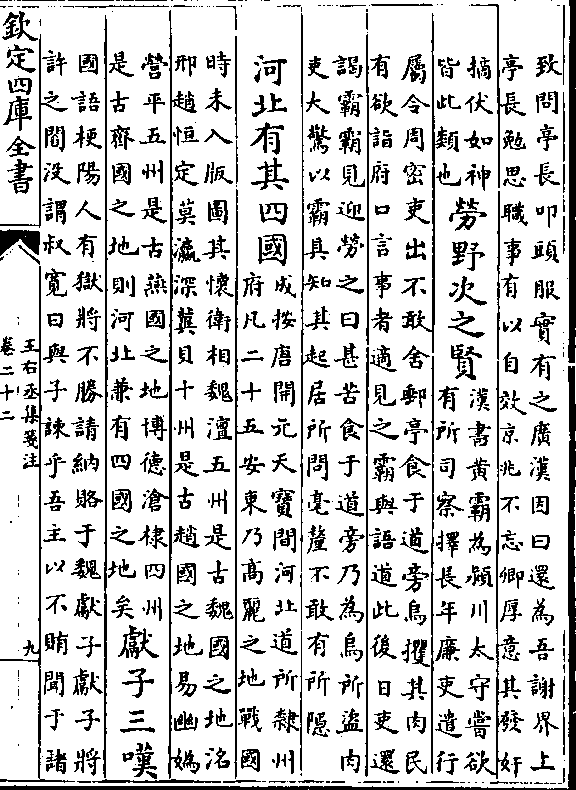 致問亭長叩頭服實有之廣漢因曰還為吾謝界上
亭長勉思職事有以自效京兆不忘卿厚意其發奸
摘伏如神
皆此類也
勞野次之賢
漢書黄霸為潁川太守嘗欲
有所司察擇長年廉吏遣行
屬令周密吏出不敢舍郵亭食于道旁烏攫其肉民
有欲詣府口言事者適見之霸與語道此後日吏還
謁霸霸見迎勞之曰甚苦食于道旁乃為烏所盜肉
吏大驚以霸具知其起居所問毫釐不敢有所隠
河北有其四國
成按唐開元天寳間河北道所隸州
府凡二十五安東乃高麗之地戰國
時未入版圖其懷衛相魏澶五州是古魏國之地洺
邢趙恒定莫瀛深冀貝十州是古趙國之地易幽媯
營平五州是古燕國之地博德滄棣四州
是古齊國之地則河北兼有四國之地矣
獻子三嘆
國語梗陽人有獄將不勝請納賂于魏獻子獻子將
許之閻没謂叔寛曰與子諫乎吾主以不賄聞于諸
欽定四庫全書
王右丞集箋注
卷二十二
九